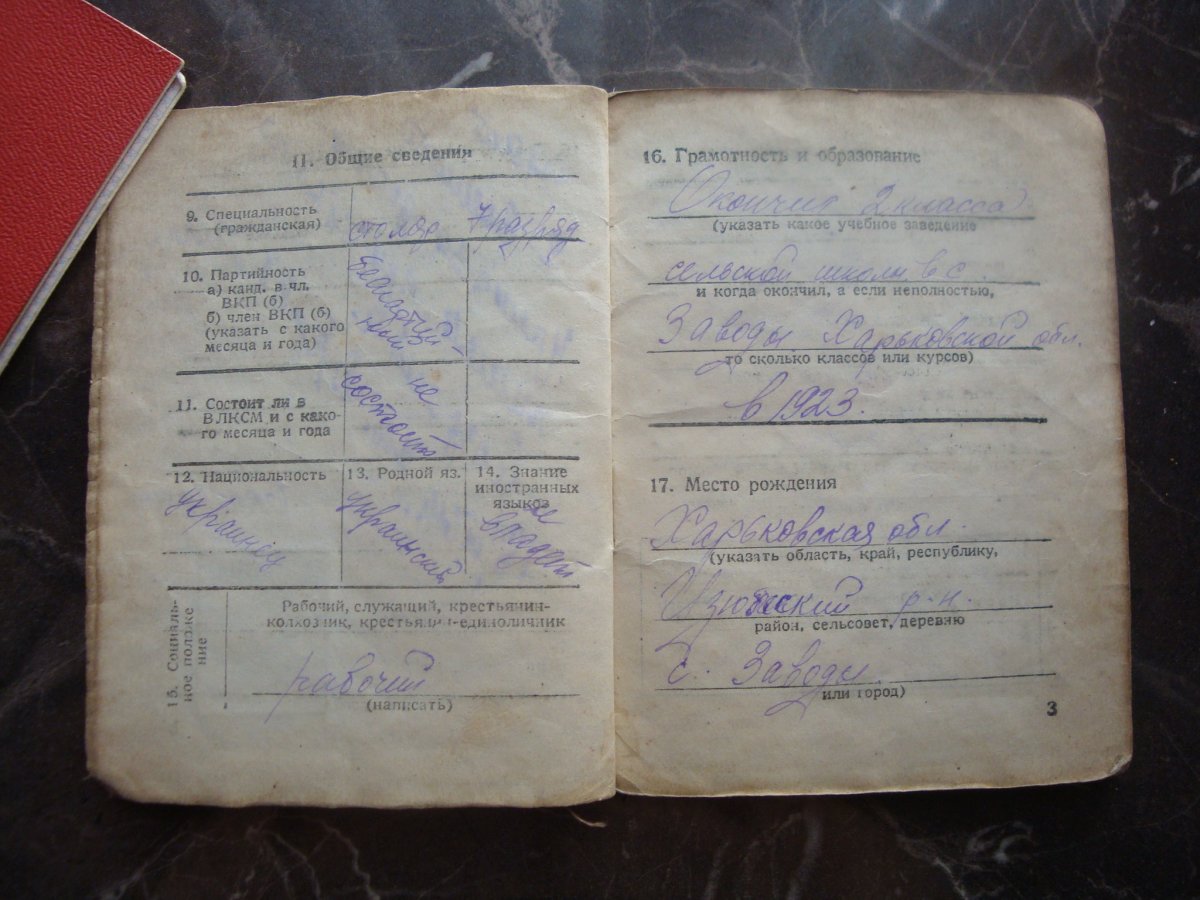 II. Общие сведения
9. Специальность
(гражданская)
столяр 7 разряд
10. Партийность
а) канд. в чл.
ВКП (б)
б) член ВКП (б)
(указать с какого
месяца и года)
беспартий-
ный
11. Состоит ли в
ВЛКСМ и с како-
го месяца и года
не
состоит
12. Национальность
украинец
13. Родной яз.
украинский
14. Знание
иностранных
языков
не
владеет
15. Социаль-
ное положе
ние
Рабочий, служащий, крестьянин-
колхозник, крестьянин-единоличник
рабочий
(написать)
16. Грамотность и образование
Окончил 2 класса
(указать какое учебное заведение
сельской школы в с.
и когда окончил, а если неполностью,
Заводы Харьковской обл.
то сколько классов или курсов)
в 1923.
17. Место рождения
Харьковская обл.
(указать область, край, республику,
Изюмский р-н.
район, сельсовет, деревню
с. Заводы
или город)
3